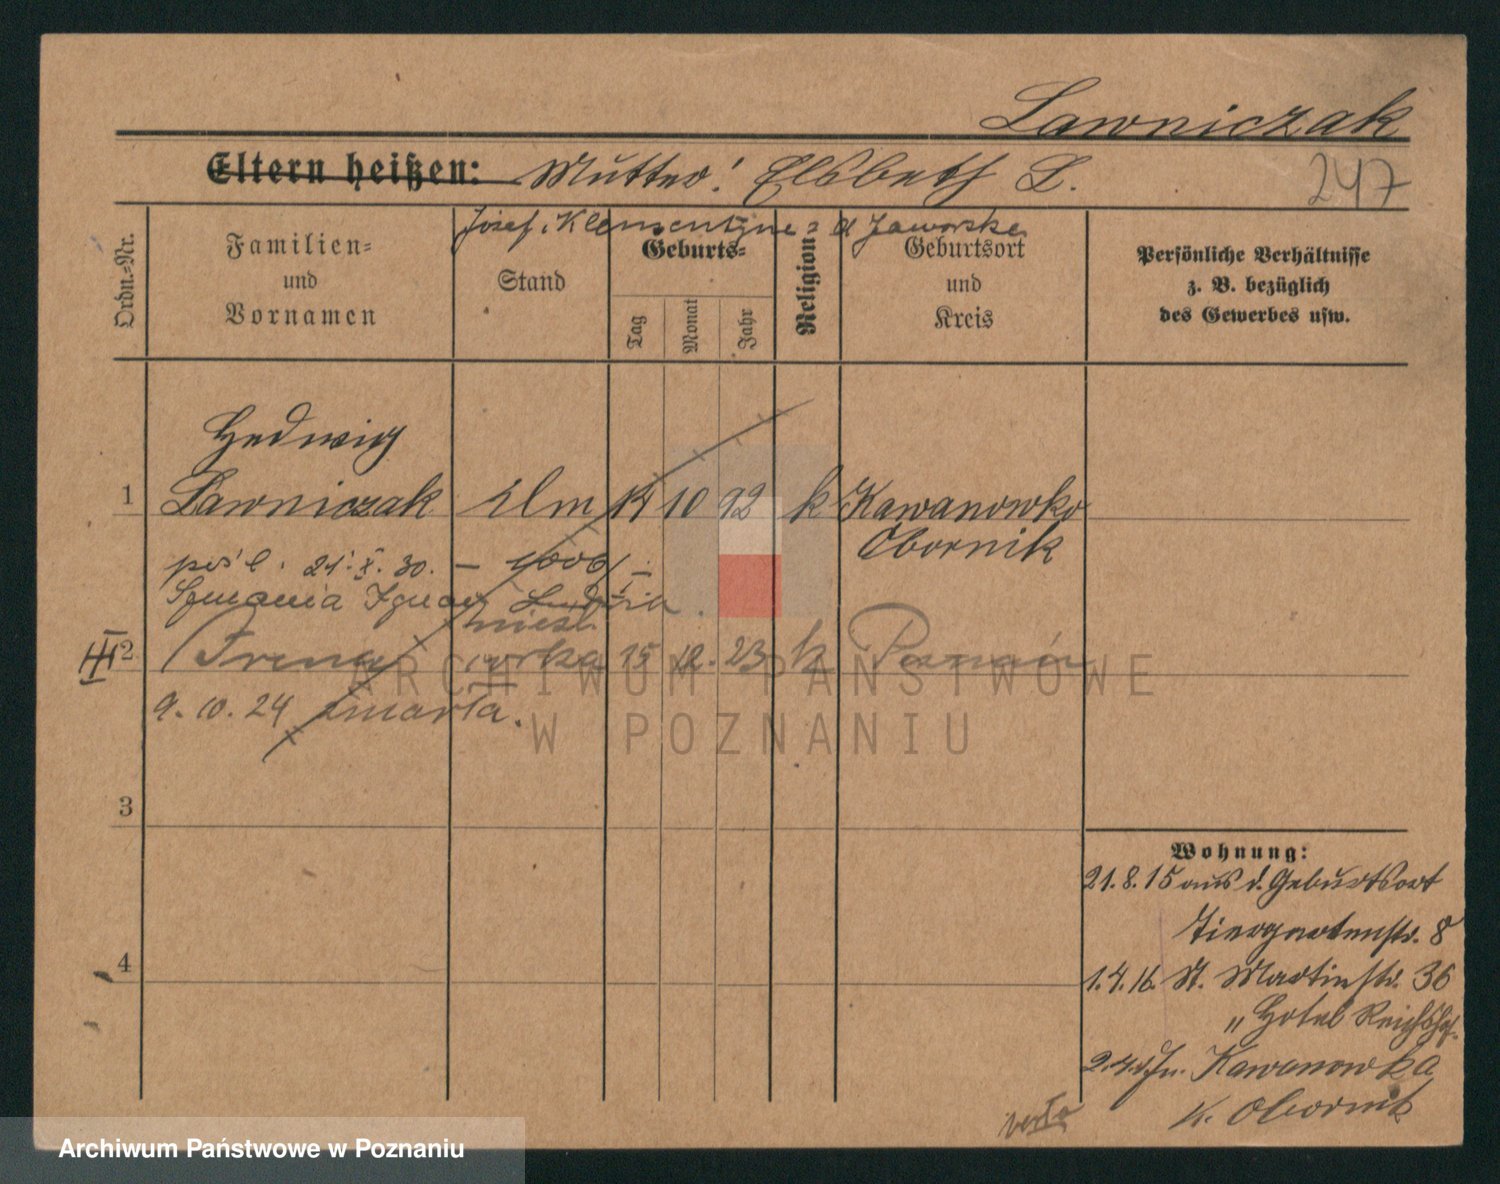 Lawniczak
Eltern heißen: Mutter: Elsbeth L.
247
Josef, Klementyne d Jaworska
Ordn.-Nr.
Familien-
und
Vornamen
Stand
Geburts-
Tag
Monat
Jahr
Religion
Geburtsort
und
Kreis
Persönliche Verhältnisse
z. B. bezüglich
des Gewerbes usw.
Hedwig
1 Lawniczak 14 10 92 k Kawanowko
Obornik
21. X. 30.
III 2 Irena 15 12. 23 k Poznań
9. 10. 24 zmarła.
3
4
Wohnung:
21. 8. 15 aus d. Geburtsort
Tiergartenstr. 8
1. 4. 16. St. Martinstr. 36
„ Hotel Reichshof.
Kawanowka
K. Obornik
verte
ARCHIWUM PAŃSTWOWE
W POZNANIU
Archiwum Państwowe w Poznaniu